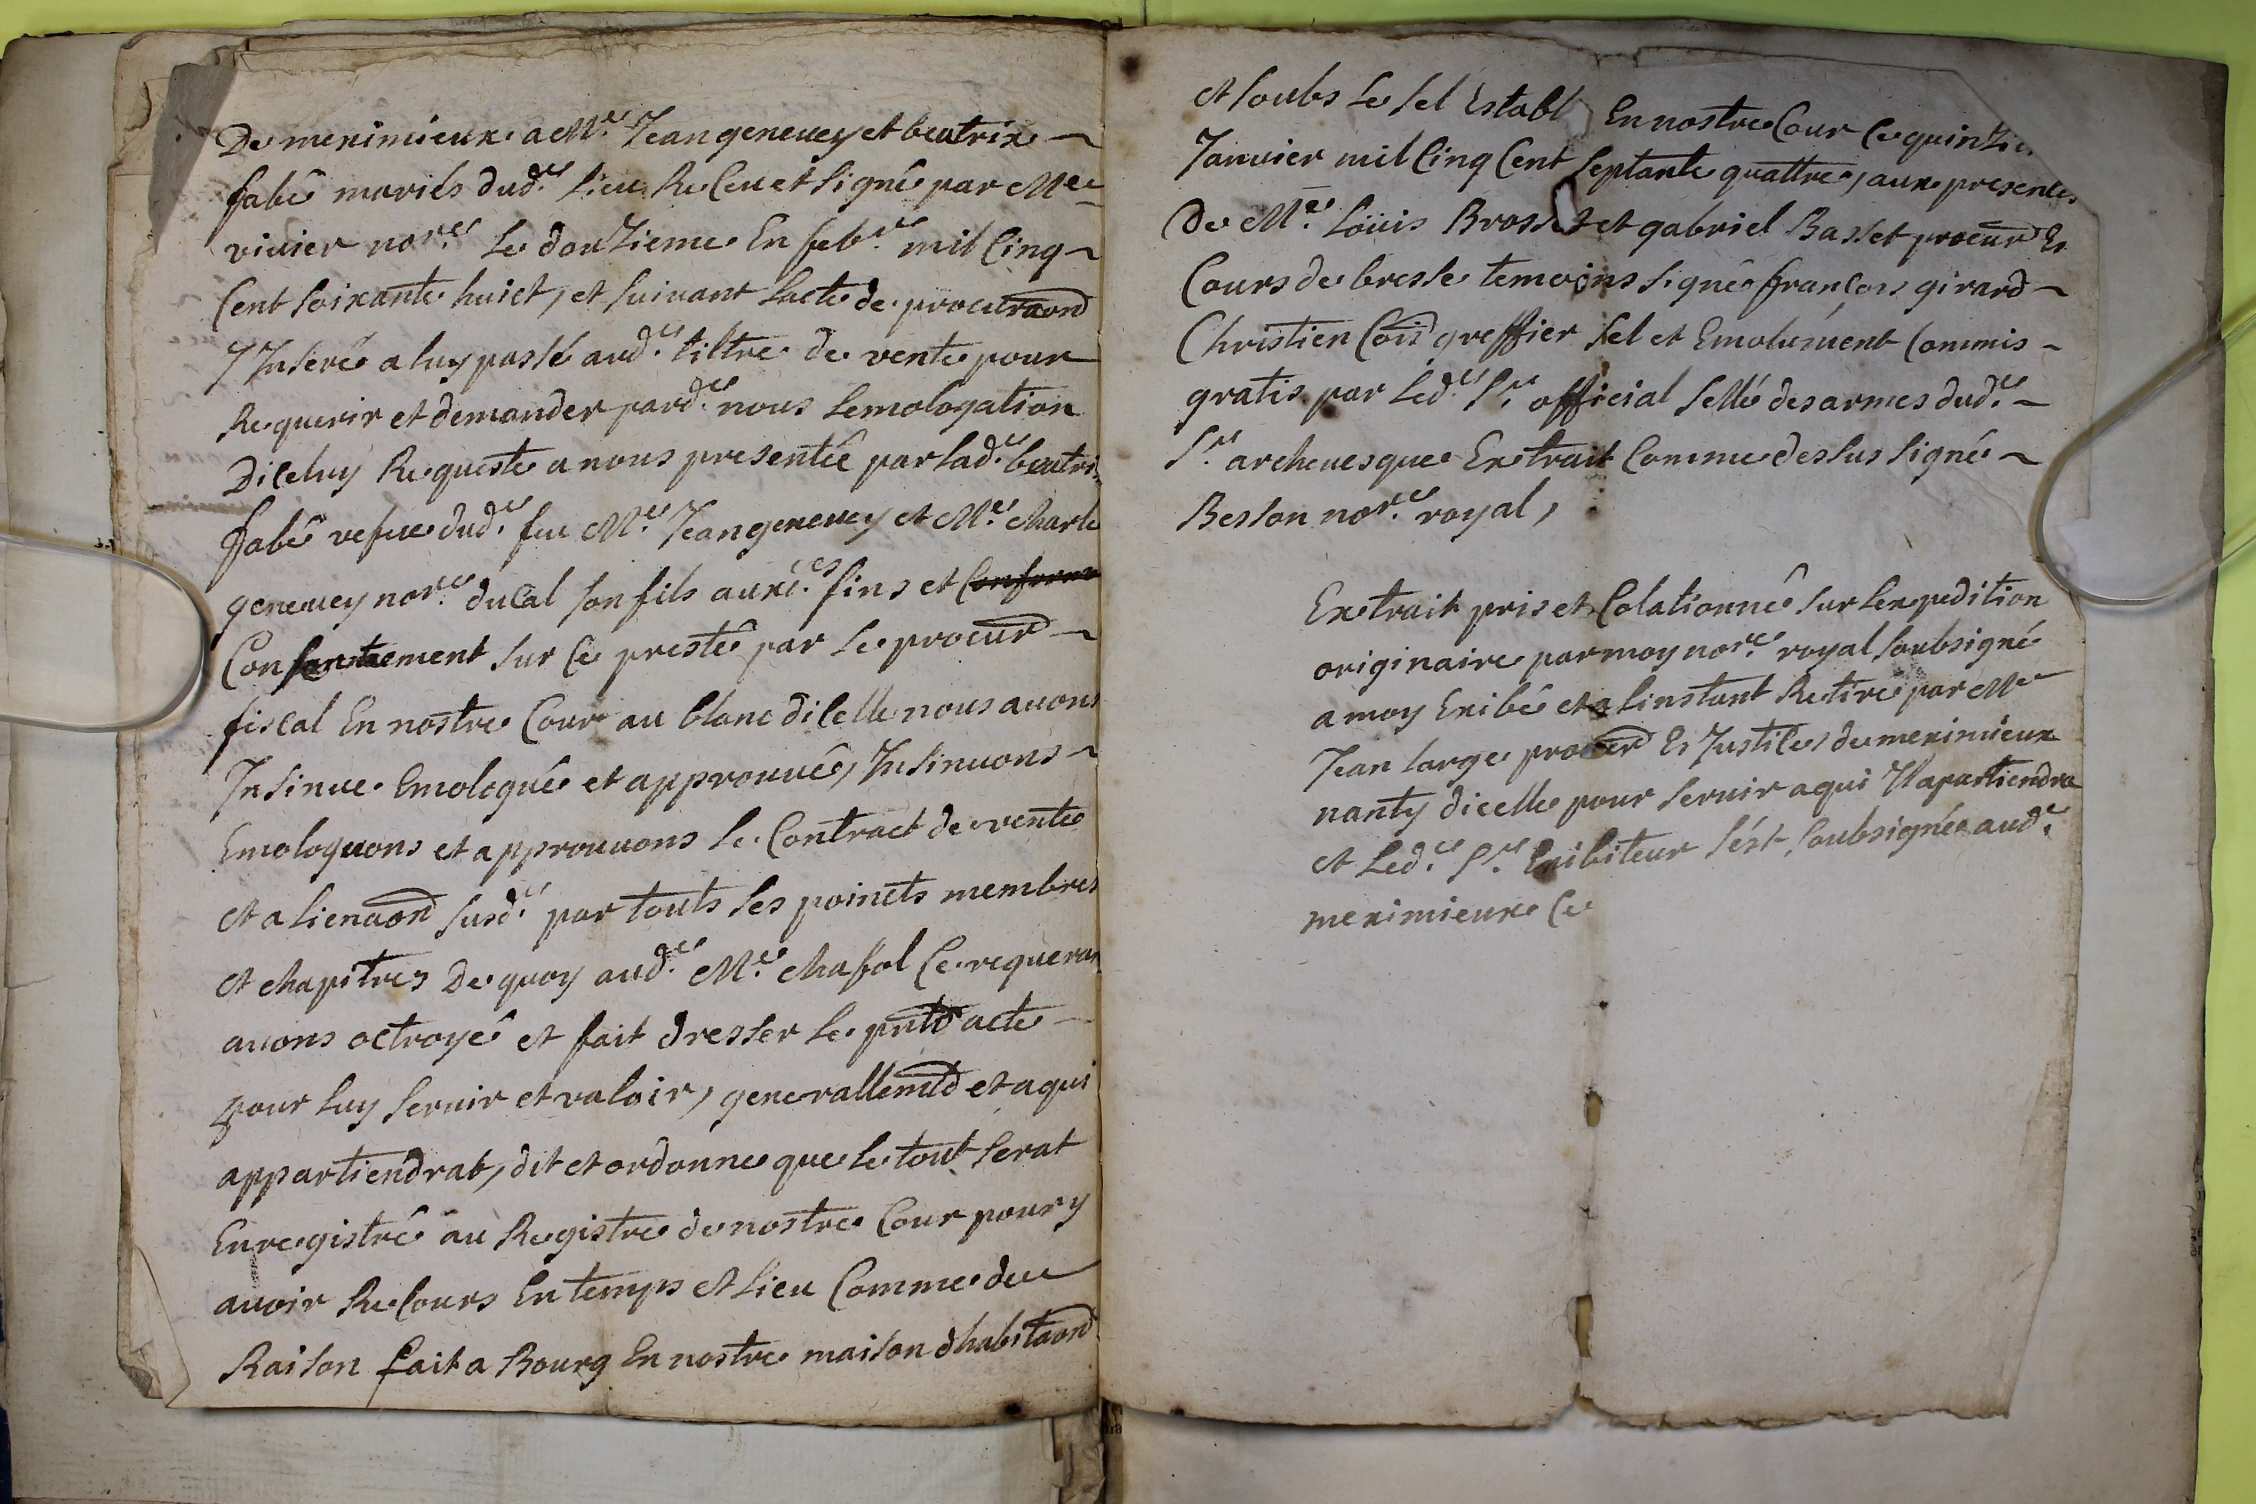 De meximieux a Me. Jean geneuey et beatrix
fabé mariés dudt. lieu Receu et signé par Me
viuier nore. le douzieme En febr. mil Cinq
Cent soixante huict, et suivant lacte de procuraon
y Inseré a luy passé audt. tiltre de vente pour
Requerir et demander pardt. nous lemologation
diceluy Requeste a nous presentée par lad. beatri
fabé vefue dudt. feu Me. Jean geneuey et Me. charle
geneuey nore. ducal son fils auxd. fins et Conforme
Consentement sur ce presté par le procur
fiscal En nostre Cour au blanc dicelle nous auons
Insinue Emologué et approuué, Insinuons
Emologuons et approuuons le Contract de vente
et alienaon susd. par touts ses poincts membres
et chapitres De quoy audt. Me. chafol Ce requeran
auons octroyé et fait dresser le pnt acte
pour luy seruir et valoir, generallemt et a qui
appartiendrat, dit et ordonne que le tout serat
Enregistré au Registre de nostre Cour pour y
auoir Recours En temps et lieu Comme de
Raison fait a Bourg En nostre maison dhabitaon
et soubs le sel Establ En nostre Cour ce quinzie
Januier mil Cinq Cent septante quattre, aux presences
De Me. Loüis Brosset et gabriel Basset procur Es
Cours de bresse temoins signé francois girard
Christien Cois greffier sel et Emolument Commis
gratis par ledt. Sr. official sellé des armes dudt.
Sr. archeuesque Extrait Comme dessus signé
Besson nore. royal,
Extrait pris et Colationné sur lexpedition
originaire par moy nore. royal soubsigné
a moy Exibée et a linstant Retirée par Me
Jean large procur Es Justices de meximieux
nanty dicelle pour seruir a qui Il apartiendra
et Ledt. Sr. Exibiteur s'est soubsigné audt.
meximieux Ce